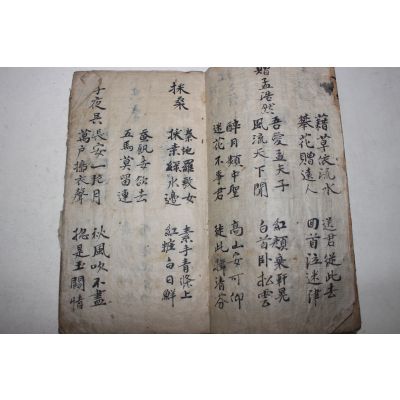 藉草依流水 送君從此去
攀花贈遠人 回首泣迷津
贈孟浩然
吾愛孟夫子 紅顔棄軒冕
風流天下聞 白首臥松雲
醉月頻中聖 高山安可仰
迷花不事君 徒此揖清芬
採桑
秦地羅敷女 素手青條上
採葉綠水邊 紅粧白日鮮
蚕飢妾欲去
五馬莫留連
子夜吳
長安一片月 秋風吹不盡
萬戶擣衣聲 總是玉關情